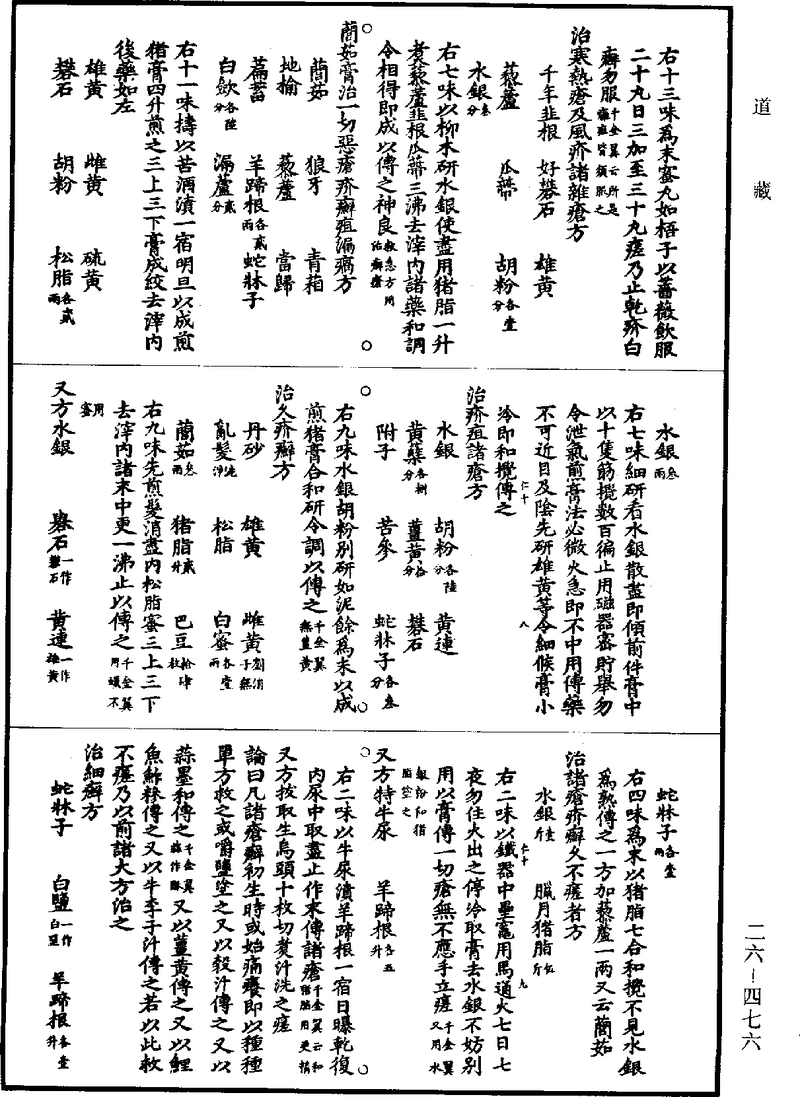 道藏
右十三味為末蜜丸如梧子以薔薇飲服
二十丸日三加至三十丸瘥乃止乾疥白
癬勿服千金翼云所是癰疽皆須服之
治寒熱瘡及風疥諸雜瘡方
千年韭根 好礬石 雄黃
藜蘆 瓜蔕 胡粉各壹分
水銀叁分
右七味以柳木研水銀使盡用猪脂一升
煑藜蘆韭根瓜蔕三沸去滓內諸藥和調
令相得即成以傅之神良救急方用治癬瘡
藺茹膏治一切惡瘡疥癬疽漏瘑方
藺茹 狼牙 青葙
地榆 藜蘆 當歸
萹蓄 羊蹄根各貳兩 蛇牀子
白斂各陸分 漏蘆貳分
右十一味擣以苦酒漬一宿明旦以成煎
猪膏四升煎之三上三下膏成絞去滓內
後藥如左
雄黃 雌黃 硫黃
礬石 胡粉 松脂各貳兩
水銀叁兩
右七味細研看水銀散盡即傾前件膏中
以十隻筯攪數百徧止用磁器密貯舉勿
令泄氣煎膏法必微火急即不中用傅藥
不可近目及陰先研雄黃等令細候膏小
冷即和攪傅之
仁十 八
治疥疽諸瘡方
水銀 胡粉各陸分 黃連
黃蘗各捌分 薑黃拾分 礬石
附子 苦參 蛇牀子各叁分
右九味水銀胡粉別研如泥餘為末以成
煎猪膏合和研令調以傅之千金翼無薑黃
治久疥癬方
丹砂 雄黃 雌黃劉涓子無
亂髮洗淨 松脂 白蜜各壹兩
藺茹叁兩 猪脂貳升 巴豆拾肆枚
右九味先煎髮消盡內松脂蜜三上三下
去滓內諸末中更一沸止以傅之千金翼用蠟不用蜜
又方水銀 礬石一作礜石 黃連一作雄黃
蛇牀子各壹兩
右四味為末以猪脂七合和攪不見水銀
為熟傅之一方加藜蘆一兩又云藺茹
治諸瘡疥癬久不瘥者方
水銀壹斤 臘月猪脂伍斤
仁十 九
右二味以鐵器中壘竈用馬通火七日七
夜勿住火出之停冷取膏去水銀不妨別
用以膏傅一切瘡無不應手立瘥千金翼又用水銀粉和猪脂塗之
又方特牛尿 羊蹄根各五升
右二味以牛尿漬羊蹄根一宿日曝乾復
內尿中取盡止作末傅諸瘡千金翼云和猪脂用更精
又方拔取生烏頭十枚切煑汁洗之瘥
論曰凡諸瘡癬初生時或始痛癢即以種種
單方救之或嚼鹽塗之又以穀汁傅之又以
蒜墨和傅之千金翼蒜作酥又以薑黃傅之又以鯉
魚鮓糝傅之又以牛李子汁傅之若以此救
不瘥乃以前諸大方治之
治細癬方
蛇牀子 白鹽一作白堊 羊蹄根各壹升
二六－四七六